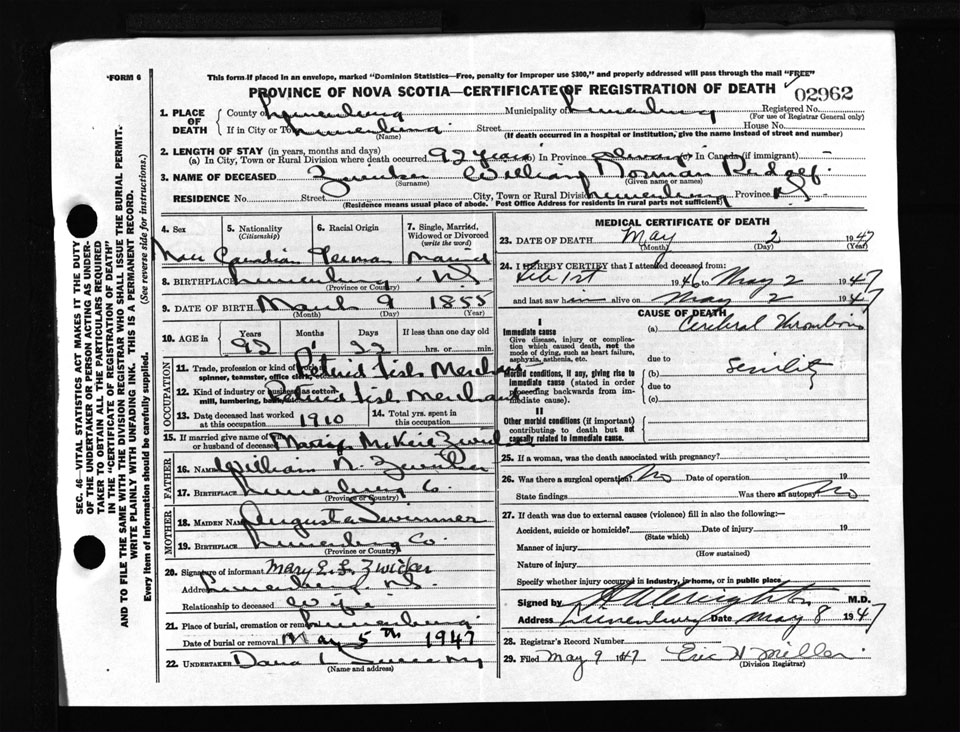 "FORM 6
This form if placed in an envelope, marked "Dominion Statistics—Free, penalty for improper use $300," and properly addressed will pass through the mail "FREE"
PROVINCE OF NOVA SCOTIA—CERTIFICATE OF REGISTRATION OF DEATH 02962
1. PLACE OF DEATH County of Lunenburg Municipality of Lunenburg Registered No.
(For use of Registrar General only)
If in City or To Lunenburg Street House No.
(Name) (If death occurred in a hospital or institution, give the name instead of street and number)
2. LENGTH OF STAY (in years, months and days)
(a) In City, Town or Rural Division where death occurred 92 years (b) In Province always (c) In Canada (if immigrant)
3. NAME OF DECEASED Zwicker William Norman
(Surname) (Given name or names)
RESIDENCE No. Street City, Town or Rural Division Lunenburg Province NS
(Residence means usual place of abode. Post Office Address for residents in rural parts not sufficient)
4. Sex 5. Nationality (Citizenship) 6. Racial Origin 7. Single, Married, Widowed or Divorced (write the word)
Male Canadian German Married
8. BIRTHPLACE Lunenburg NS
(Province or Country)
9. DATE OF BIRTH March 9 1855
(Month) (Day) (Year)
10. AGE in Years Months Days If less than one day old
92 1 22 hrs. or min.
OCCUPATION
11. Trade, profession or kind of Retired Fish Merchant
spinner, teamster, office clerk
12. Kind of industry or business as cotton Retired Fish Merchant
mill, lumbering, bank
13. Date deceased last worked at this occupation 1910 14. Total yrs. spent in this occupation
15. If married give name of or husband of deceased Zwicker
FATHER
16. NAME William N. Zwicker
17. BIRTHPLACE Lunenburg Co.
(Province or Country)
MOTHER
18. MAIDEN NAME Augusta
19. BIRTHPLACE Lunenburg Co.
(Province or Country)
20. Signature of informant Mary E. L. Zwicker
Address Lunenburg, N.S.
Relationship to deceased Wife
21. Place of burial, cremation or removal Lunenburg
Date of burial or removal May 5th 1947
22. UNDERTAKER Dana Sweeny
(Name and address)
MEDICAL CERTIFICATE OF DEATH
23. DATE OF DEATH May 2 1947
(Month) (Day) (Year)
24. I HEREBY CERTIFY that I attended deceased from:
Feb 1st 1946 to May 2 1947
and last saw him alive on May 2 1947
CAUSE OF DEATH
I
Immediate cause
Give disease, injury or complication which caused death, not the mode of dying, such as heart failure, asphyxia, asthenia, etc.
(a) Cerebral Thrombosis
due to
Morbid conditions, if any, giving rise to immediate cause (stated in order proceeding backwards from immediate cause).
(b) Senility
due to
(c)
II
Other morbid conditions (if important) contributing to death but not causally related to immediate cause.
25. If a woman, was the death associated with pregnancy?
26. Was there a surgical operation? No Date of operation 19
State findings Was there an autopsy? No
27. If death was due to external causes (violence) fill in also the following:—
Accident, suicide or homicide? Date of injury 19
(State which)
Manner of injury
(How sustained)
Nature of injury
Specify whether injury occurred in industry, in home, or in public place
Signed by M.D.
Address Lunenburg Date May 8 1947
28. Registrar's Record Number
29. Filed May 9 1947 Eric H Miller
(Division Registrar)
SEC. 46—VITAL STATISTICS ACT MAKES IT THE DUTY
OF THE UNDERTAKER OR PERSON ACTING AS UNDER-
TAKER TO OBTAIN ALL THE PARTICULARS REQUIRED
IN THE "CERTIFICATE OF REGISTRATION OF DEATH"
AND TO FILE THE SAME WITH THE DIVISION REGISTRAR WHO SHALL ISSUE THE BURIAL PERMIT.
WRITE PLAINLY WITH UNFADING INK. THIS IS A PERMANENT RECORD.
Every item of Information should be carefully supplied. (See reverse side for instructions.)